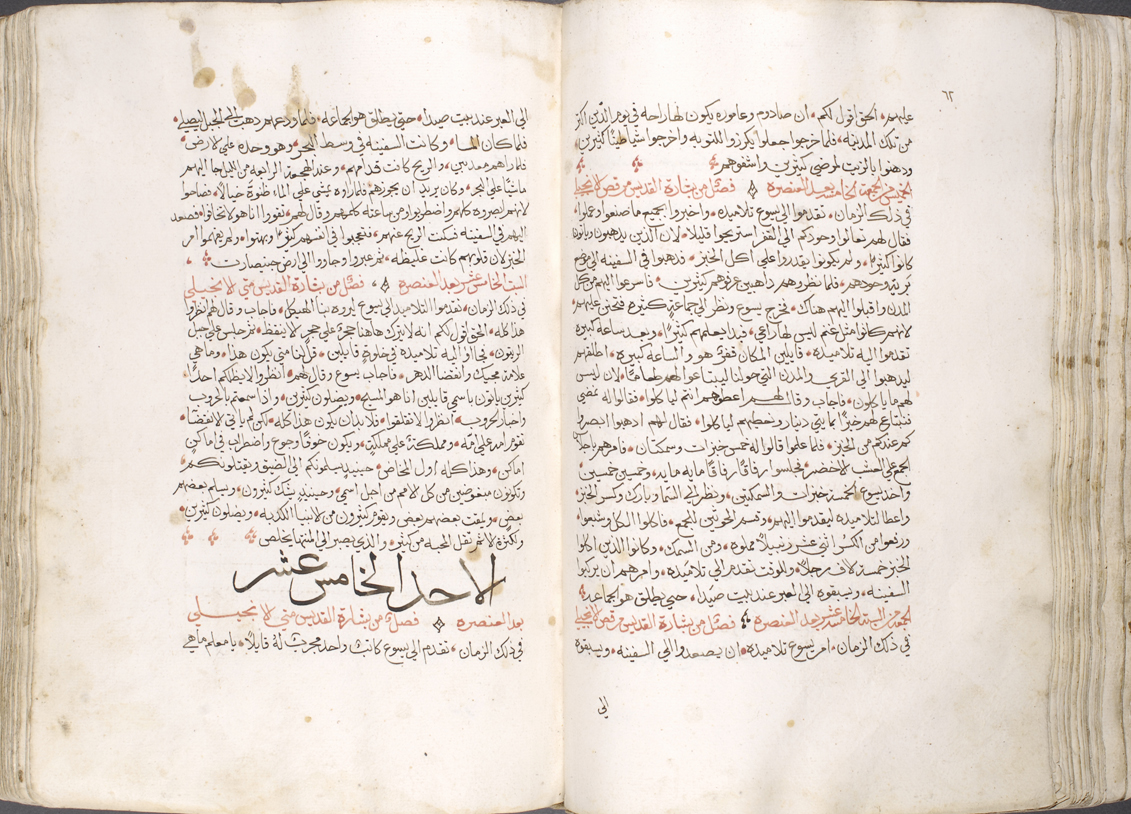 ٦٢
عليهم الحق اقول لكم ان صادوم وعاموره يكون لها راحه في يوم الدين اكثر
من تلك المدينه فلما خرجوا جعلوا يكرزوا للتوبه واخرجوا شياطينًا كثيرين
ودهنوا بالزيت لمرضي كثيرين واشفوهم
الخامسه بعد العنصره فصل من بشارة القديس مرقص الانجيلي
في ذلك الزمان تقدموا الي يسوع تلاميذه واخبروا بجميع ما صنعوا وعملوا
فقال لهم تعالوا وحدكم الي القفر استريحوا قليلا لان الذين يذهبون وياتوا
كانوا كثيرًا ولم يكونوا يقدروا علي اكل الخبز فذهبوا في السفينه الي موضع
بريه وحدهم فلما نظروهم ذاهبين عرفوهم كثيرين فاسرعوا اليهم من كل
المدن واقبلوا اليهم هناك فخرج يسوع ونظر الي جماعةٍ كثيرة فتحنن عليهم
لانهم كانوا مثل غنم ليس لها راعي فبدا يعلمهم كثيرًا وبعد ساعة كبيره
تقدموا اليه تلاميذه قايلين المكان قفرٌ هو والساعه كبيره اطلقهم
ليذهبوا الي القري والمدن التي حولنا ليبتاعوا لهم طعامًا لان ليس
لهم ما ياكلون فاجاب وقال لهم اعطوهم انتم لياكلوا فقالوا له نمضي
فنبتاع لهم خبزًا بمايتي دينار ونعطيهم لياكلوا فقال لهم اذهبوا ابصروا
كم عندكم من الخبز فلما علموا قالوا له خمس خبزات وسمكتان فامرهم باجلاس
الجمع علي العشب الاخضر فجلسوا رفاقًا رفاقًا مايه مايه وخمسين خمسين
واخذ يسوع الخمسة خبزات والسمكتين ونظر الي السما وبارك وكسر الخبز
واعطا لتلاميذه ليقدموا اليهم وقسم الحوتين للجمع فاكلوا الكل وشبعوا
ورفعوا من الكسر اثني عشر زنبيلًا مملوه ومن السمك وكانوا الذين اكلوا
الخبز خمسة الاف رجلًا وللوقت تقدم الي تلاميذه وامرهم ان يركبوا
السفينه ويسبقوه الي العبر عند بيت صيدا حتي يطلق هو الجماعه
الجمعه من السبة الخامسة عشر بعد العنصره فصل من بشارة القديس مرقص الانجيلي
في ذلك الزمان امر يسوع تلاميذه ان يصعدوا الي السفينه ويسبقوه
الي
الي العبر عند بيت صيدا حتي يطلق هو الجماعه فلما ودعهم ذهب الي الجبل ليصلي
فلما كان المسا وكانت السفينه في وسط البحر وهو وحده علي الارض
فلما راهم معذبين والريح كانت قدامهم وعند الهجعة الرابعه من الليل جا اليهم
ماشيًا علي البحر وكان يريد ان يجوزهم فلما راوه يمشي علي الما ظنوه خيالا فصاحوا
لانهم ابصروه كلهم واضطربوا ومن ساعته كلمهم وقال لهم تقووا انا هو لا تخافوا فصعد
اليهم في السفينه فسكنت الريح عنهم فتعجبوا في انفسهم كثيرًا وبهتوا ولم يفهموا امر
الخبز لان قلوبهم كانت غليظه ثم عبروا وجاوا الي ارض جنيصارت
السبت الخامس عشر بعد العنصره فصل من بشارة القديس متي الانجيلي
في ذلك الزمان تقدموا التلاميذ الي يسوع ليروه بنا الهيكل فاجاب وقال لهم انظروا
هذا كله الحق اقول لكم انه لا يترك هاهنا حجرة علي حجر لا ينقض ثم جلس علي جبل
الزيتون فجاوا اليه تلاميذه في خلوة قايلين قل لنا متي يكون هذا وما هي
علامة مجيك وانقضا الدهر فاجاب يسوع وقال لهم انظروا لا يضلكم احدًا
كثيرين ياتون باسمي قايلين انا هو المسيح ويضلون كثيرين واذا سمعتم بالحروب
واخبار الحروب انظروا لا تقلقوا فلا بد ان يكون هذا كله لكن لم ياتي الانقضا
تقوم امه علي امه ومملكة علي مملكةٍ ويكون خوفًا وجوع واضطراب في اماكن
اماكن وهذا كله اول المخاض حينيذٍ يسلمونكم الي الضيق ويقتلونكم
وتكونون مبغوضين من كل الامم من اجل اسمي وحينيذٍ يشك كثيرون ويسلم بعضهم
بعض ويمقت بعضهم بعض ويقوم كثيرون من الانبيا الكذبه ويضلون كثيرين
ولكثرة الاثم تقل المحبه من كثير والذي يصبر الي المنتها يخلص
الاحد الخامس عشر
بعد العنصره فصل من بشارة القديس متي الانجيلي
في ذلك الزمان تقدم الي يسوع كاتبٌ واحد مجربٌ لهُ قايلًا يا معلم ما هي